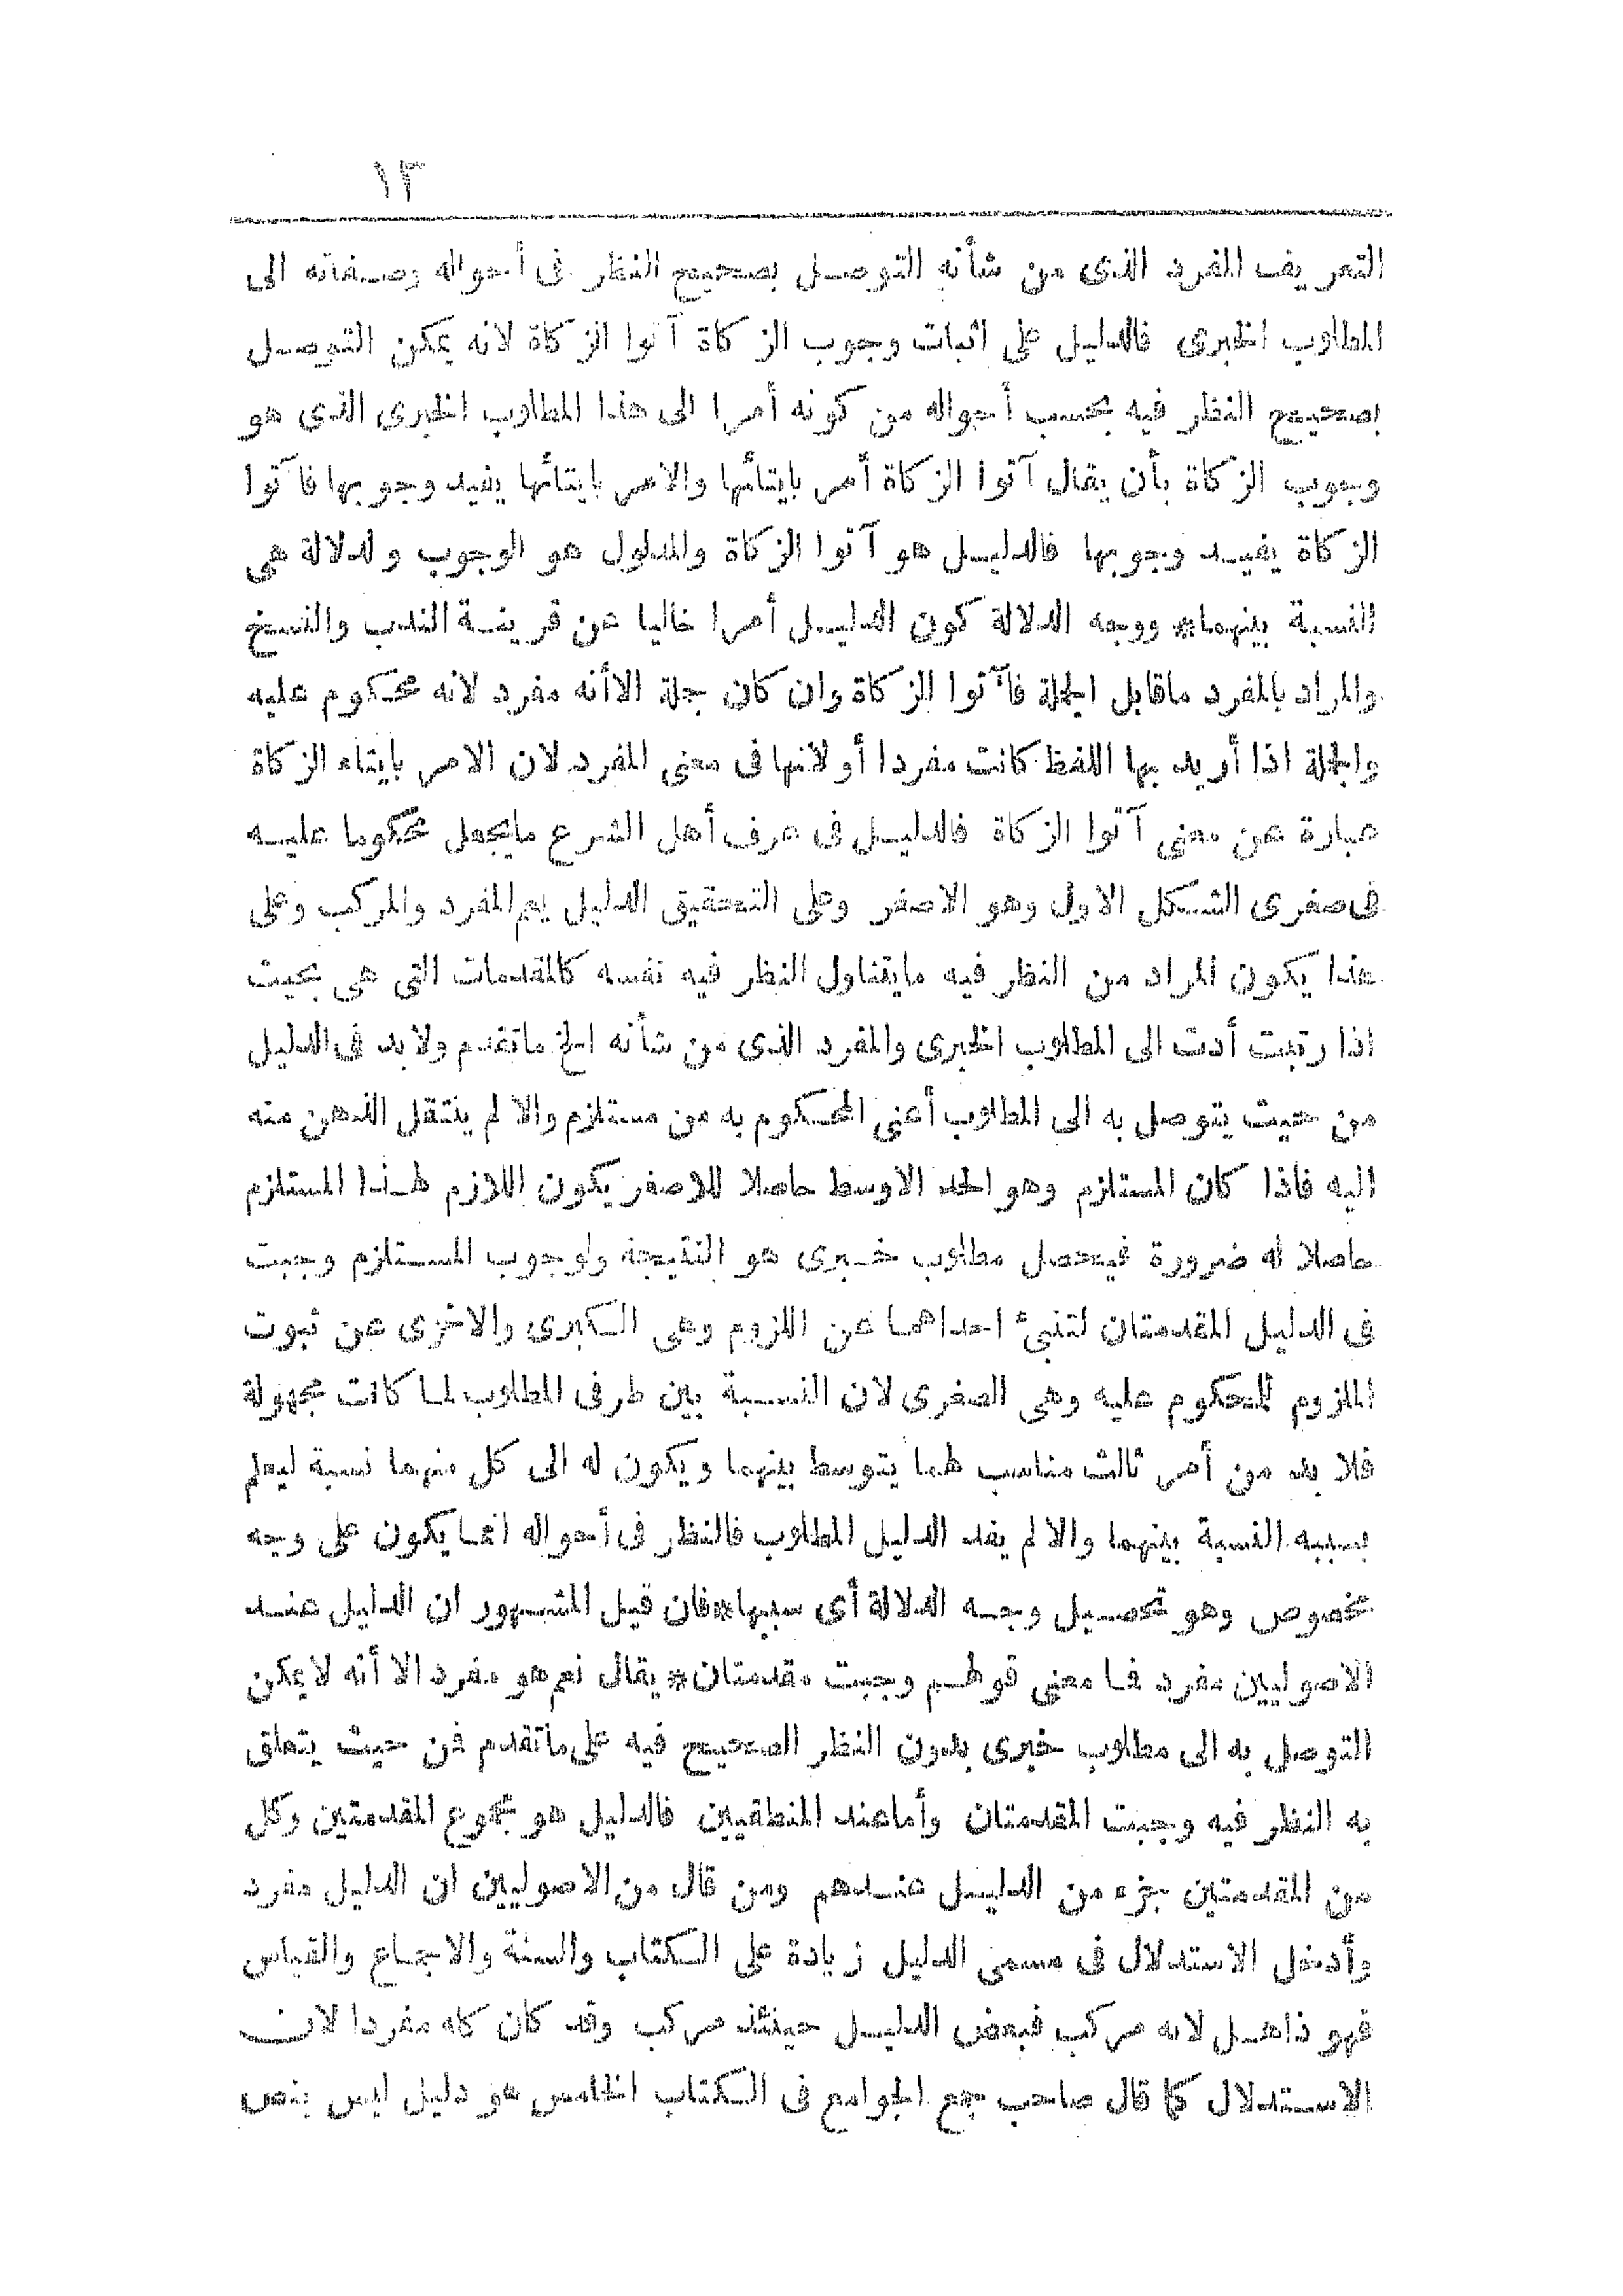 ١٣
التعريف المفرد الذى من شأنه التوصل بصحيح النظر فى أحواله وصفاته الى
المطلوب الخبرى فالدليل على اثبات وجوب الزكاة آتوا الزكاة لانه يمكن التوصل
بصحيح النظر فيه بحسب أحواله من كونه أمرا الى هذا المطلوب الخبرى الذى هو
وجوب الزكاة بأن يقال آتوا الزكاة أمر بايتائها والامر بايتائها يفيد وجوبها فآتوا
الزكاة يفيد وجوبها فالدليل هو آتوا الزكاة والمدلول هو الوجوب ولدلالة هى
النسبة بينهما* ووجه الدلالة كون الدليل أمرا خاليا عن قرينة الندب والنسخ
والمراد بالمفرد ماقابل الجملة فآتوا الزكاة وان كان جملة الاأنه مفرد لانه محكوم عليه
والجملة اذا أريد بها اللفظ كانت مفردا أو لانها فى معنى المفرد لان الامر بايتاء الزكاة
عبارة عن معنى آتوا الزكاة فالدليل فى عرف أهل الشرع مايجعل محكوما عليه
فى صغرى الشكل الاول وهو الاصغر وعلى التحقيق الدليل يعم المفرد والمركب وعلى
هذا يكون المراد من النظر فيه مايتناول النظر فيه نفسه كالمقدمات التى هى بحيث
اذا رتبت أدت الى المطلوب الخبرى والمفرد الذى من شأنه الخ ماتقدم ولا بد فى الدليل
من حيث يتوصل به الى المطلوب أعنى المحكوم به من مستلزم والا لم ينتقل الذهن منه
اليه فاذا كان المستلزم وهو الحد الاوسط حاصلا للاصغر يكون اللازم لهذا المستلزم
حاصلا له ضرورة فيحصل مطلوب خبرى هو النتيجة ولوجوب المستلزم وجبت
فى الدليل المقدمتان لتنبئ احداهما عن اللزوم وهى الكبرى والاخرى عن ثبوت
الملزوم للمحكوم عليه وهى الصغرى لان النسبة بين طرفى المطلوب لما كانت مجهولة
فلا بد من أمر ثالث مناسب لهما يتوسط بينهما ويكون له الى كل منهما نسبة ليعلم
بسببه النسبة بينهما والا لم يفد الدليل المطلوب فالنظر فى أحواله انما يكون على وجه
مخصوص وهو تحصيل وجه الدلالة أى سببها* فان قيل المشهور ان الدليل عند
الاصوليين مفرد فما معنى قولهم وجبت مقدمتان* يقال نعم هو مفرد الا أنه لا يمكن
التوصل به الى مطلوب خبرى بدون النظر الصحيح فيه على ماتقدم فمن حيث يتعلق
به النظر فيه وجبت المقدمتان وأما عند المنطقيين فالدليل هو مجموع المقدمتين وكل
من المقدمتين جزء من الدليل عندهم ومن قال من الاصوليين ان الدليل مفرد
وأدخل الاستدلال فى مسمى الدليل زيادة على الكتاب والسنة والاجماع والقياس
فهو ذاهل لانه مركب فبعض الدليل حينئذ مركب وقد كان كله مفردا لان
الاستدلال كما قال صاحب جمع الجوامع فى الكتاب الخامس هو دليل ليس بنص